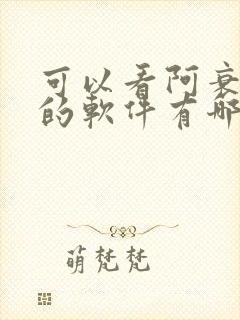 可以看阿衰
的軟件有哪
萌梵梵